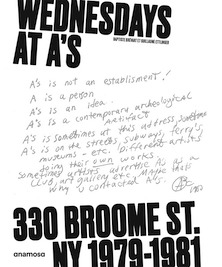 WEDNESDAYS
AT A'S
A's is not an establisment!
A is a person
A's is an idea.
A's is a contemporary archeological
artifact
A's is sometimes at this address sometime
A's is on the streets, subways, ferry's,
museums - etc. different artists
doing their own works
sometimes artists advertise A's as a
club, art gallery etc. Maybe that
Why u contacted A's.
330 BROOME ST.
anamosa
NY 1979-1981